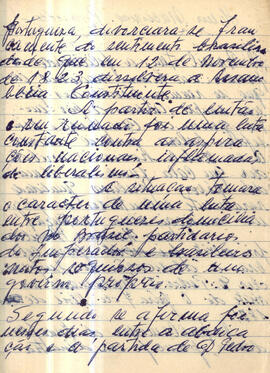 Portugueza, divorciara-se fran
camente do sentimento brasilei
desde que em 12 de Novembro
de 1823 dissolvera a Assem
bleia Constituinte.
A partir de então
o seu reinado foi uma luta
constante contra as aspira
ções nacionais, inflamadas
de liberalismo.
E a situação tomara
o caracter de uma luta
entre portugueses domicilia
dos no Brasil partidarios
do Imperador, e brasileiros
natos, de um
governo proprio.
Segundo se afirma foi
nesses dias, entre a abdica
ção e a partida de D. Pedro